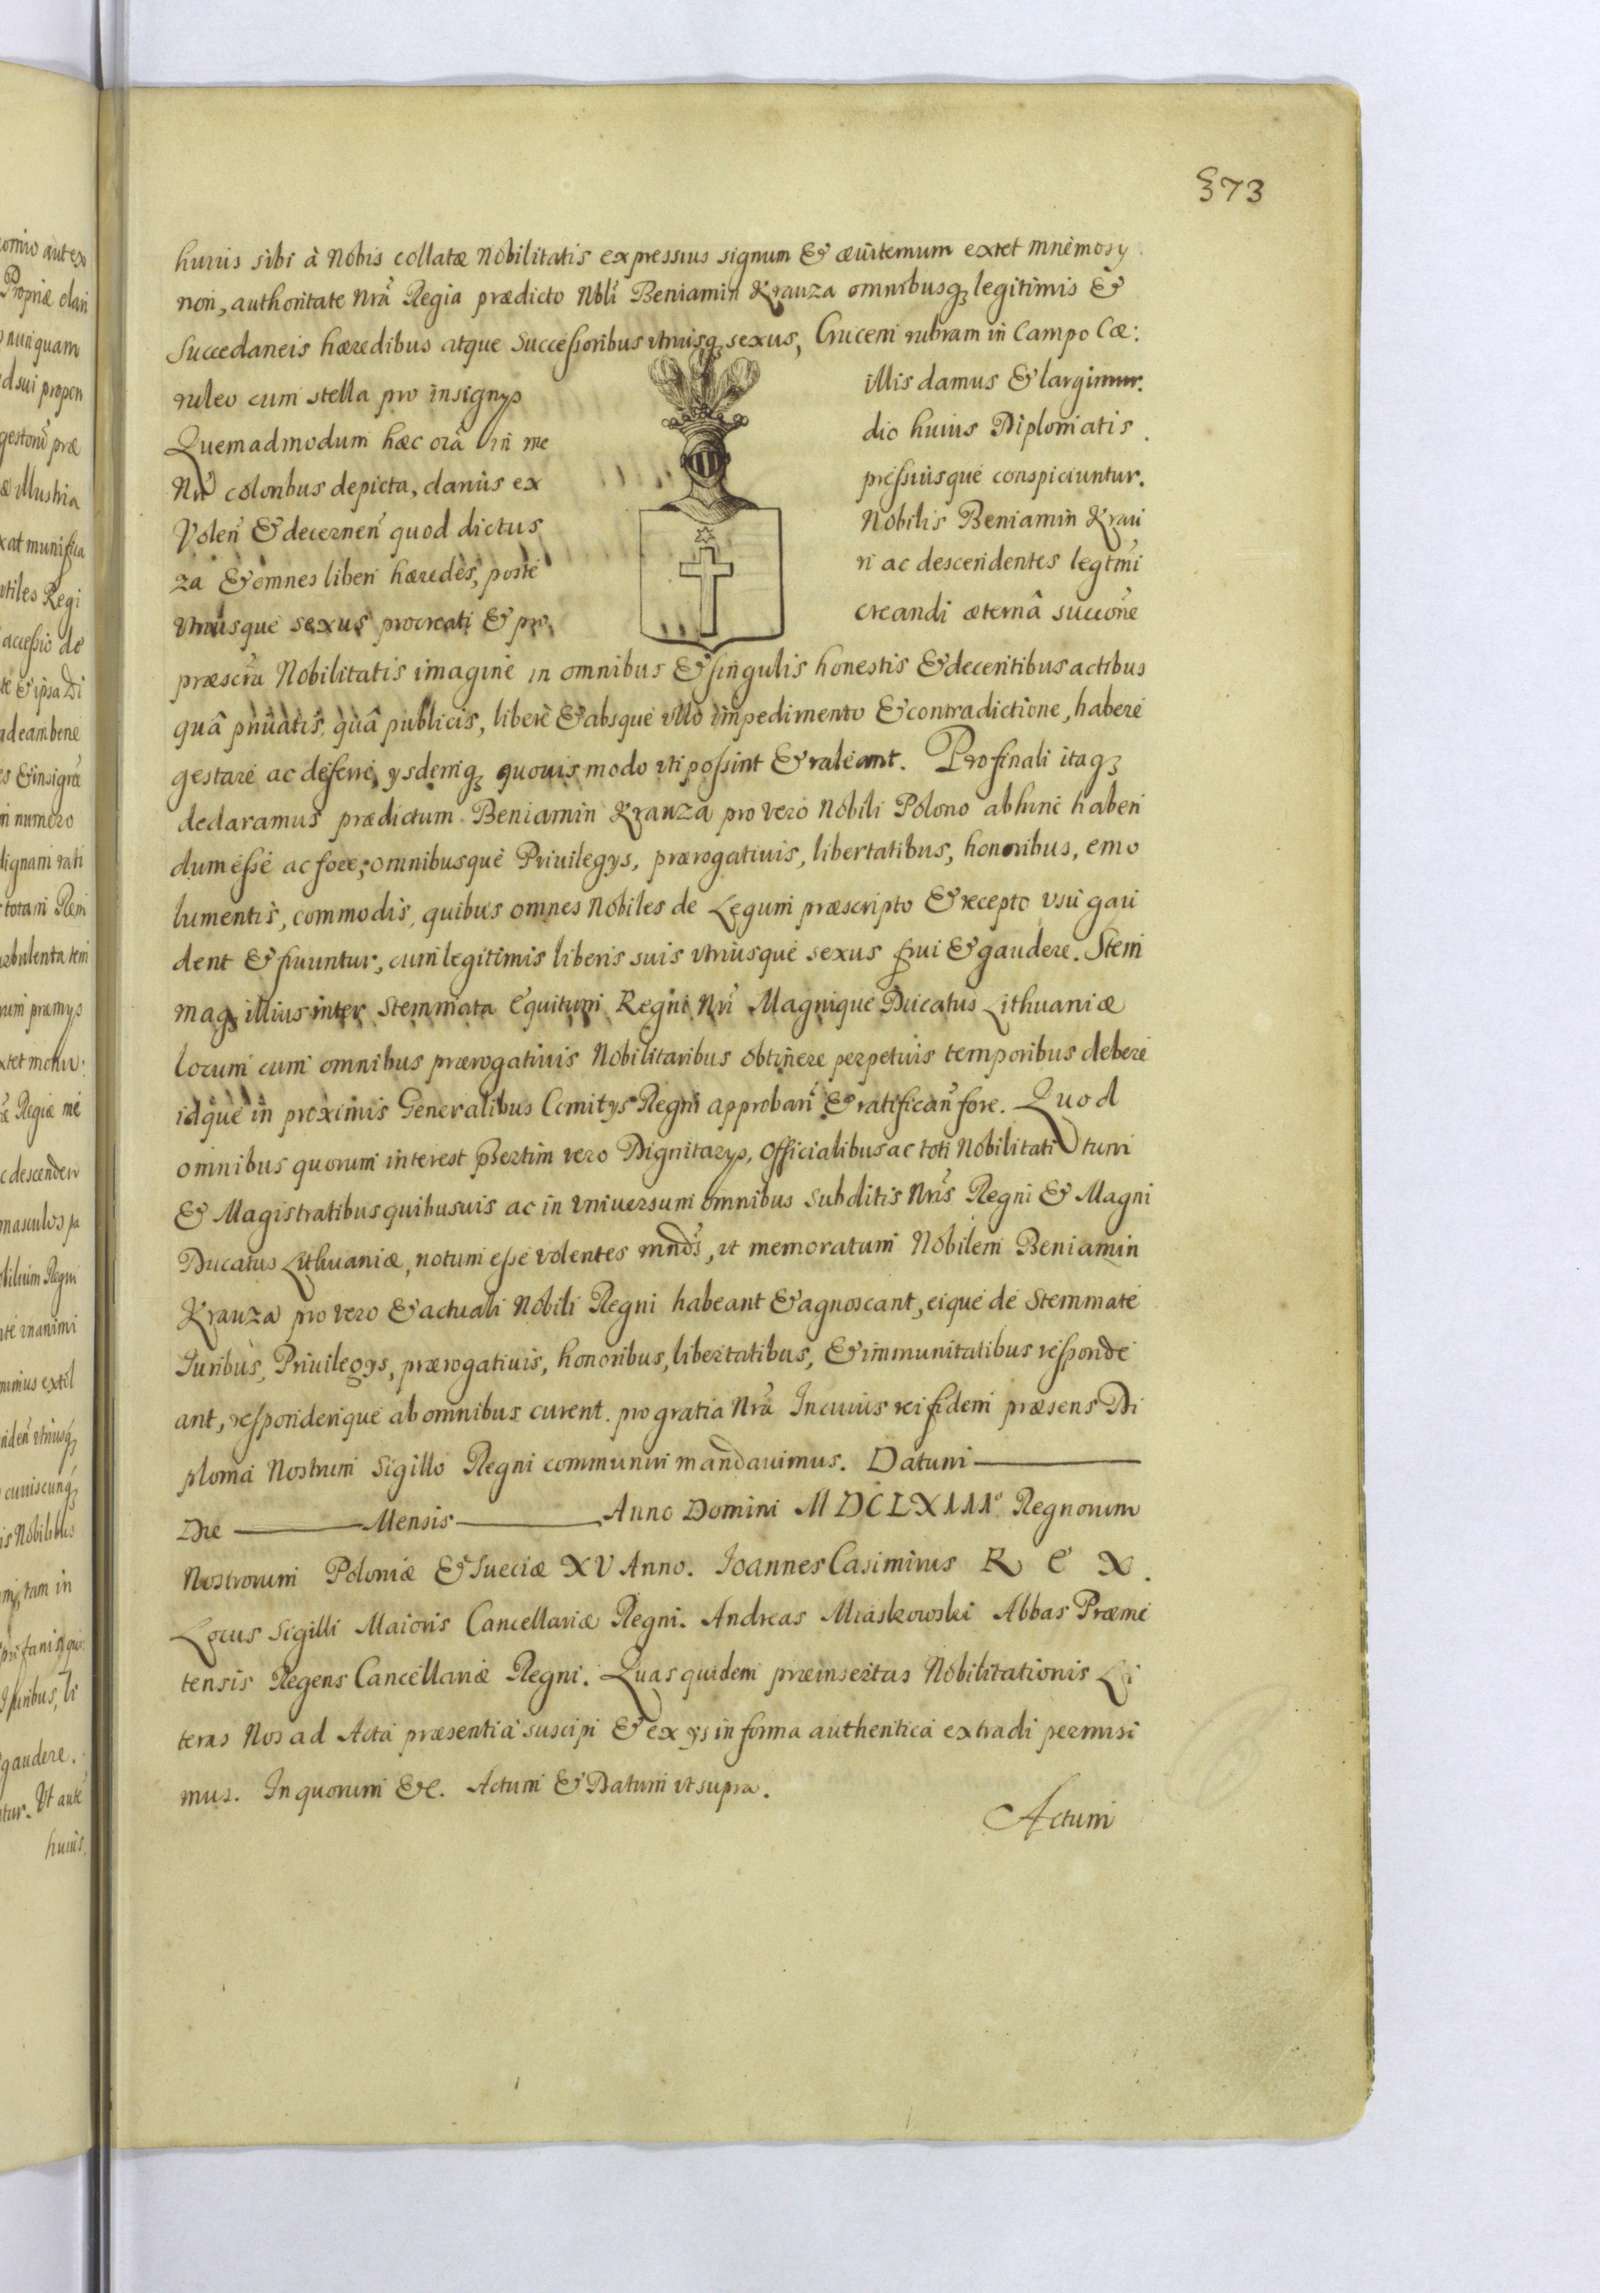 373
huius sibi à Nobis collatæ Nobilitatis expressius signum & æuiternum extet mnemosy
non, authoritate Nrã Regia prædicto Nbli Beniamin Krauza omnibusq; legitimis &
succedaneis hæredibus atque Successoribus vtriusq; sexus, Crucem rubram in Campo Cæ:
ruleo cum stella pro insignys illis damus & largimur.
Quemadmodum hæc oıã in me dio huius Diplomatis
Nri coloribus depicta, clarius ex pressiusque conspiciuntur.
Volen̄ & decernen̄ quod dictus Nobilis Beniamin Krau
za & omnes liberi hæredes, poste ri ac descendentes legtmi
vtriusque sexus procreati & pro creandi æternâ succone
præscra Nobilitatis imagine in omnibus & singulis honestis & decentibus actibus
quâ priuatis, quâ publicis, liberè & absque vllo impedimento & contradictione, habere
gestare ac deferre, ysdemq; quouis modo vti possint & valeant. Pro finali itaq;
declaramus prædictum Beniamin Krauza pro vero Nobili Polono abhinc haben
dum esse ac fore; omnibusque Priuilegys, prærogatiuis, libertatibus, honoribus, emo
lumentis, commodis, quibus omnes Nobiles de Legum præscripto & recepto vsu gau
dent & fruuntur, cum legitimis liberis suis vtriusque sexus frui & gaudere. Stem
maq; illius inter Stemmata Equitum Regni Nri Magnique Ducatus Lithuaniæ
locum cum omnibus prærogatiuis Nobilitaribus obtinere perpetuis temporibus debere
idque in proximis Generalibus Comitys Regni approbari & ratifican̄ fore. Quod
omnibus quorum interest psertim vero Dignitarys, Officialibus ac toti Nobilitati tum
& Magistratibus quibusuis ac in vniuersum omnibus subditis Nris Regni & Magni
Ducatus Lithuaniæ, notum esse volentes mnds, vt memoratum Nobilem Beniamin
Krauza pro vero & actuali Nobili Regni habeant & agnoscant, eique de Stemmate
Iuribus, Priuilegys, prærogatiuis, honoribus, libertatibus, & immunitatibus responde
ant, responderique ab omnibus curent. pro gratia Nrã In cuius rei fidem præsens Di
ploma Nostrum Sigillo Regni communiri mandauimus. Datum
Die Mensis Anno Domini MDCLXIII° Regnorum
Nostrorum Poloniæ & Sueciæ XV Anno. Ioannes Casimirus REX.
Locus Sigilli Maioris Cancellariæ Regni. Andreas Miaskowski Abbas Præme
tensis Regens Cancellariæ Regni. Quas quidem præinsertas Nobilitationis Li
teras Nos ad Acta præsentia suscipi & ex ys in forma authentica extradi permisi
mus. In quorum &c. Actum & Datum vt supra.
Actum